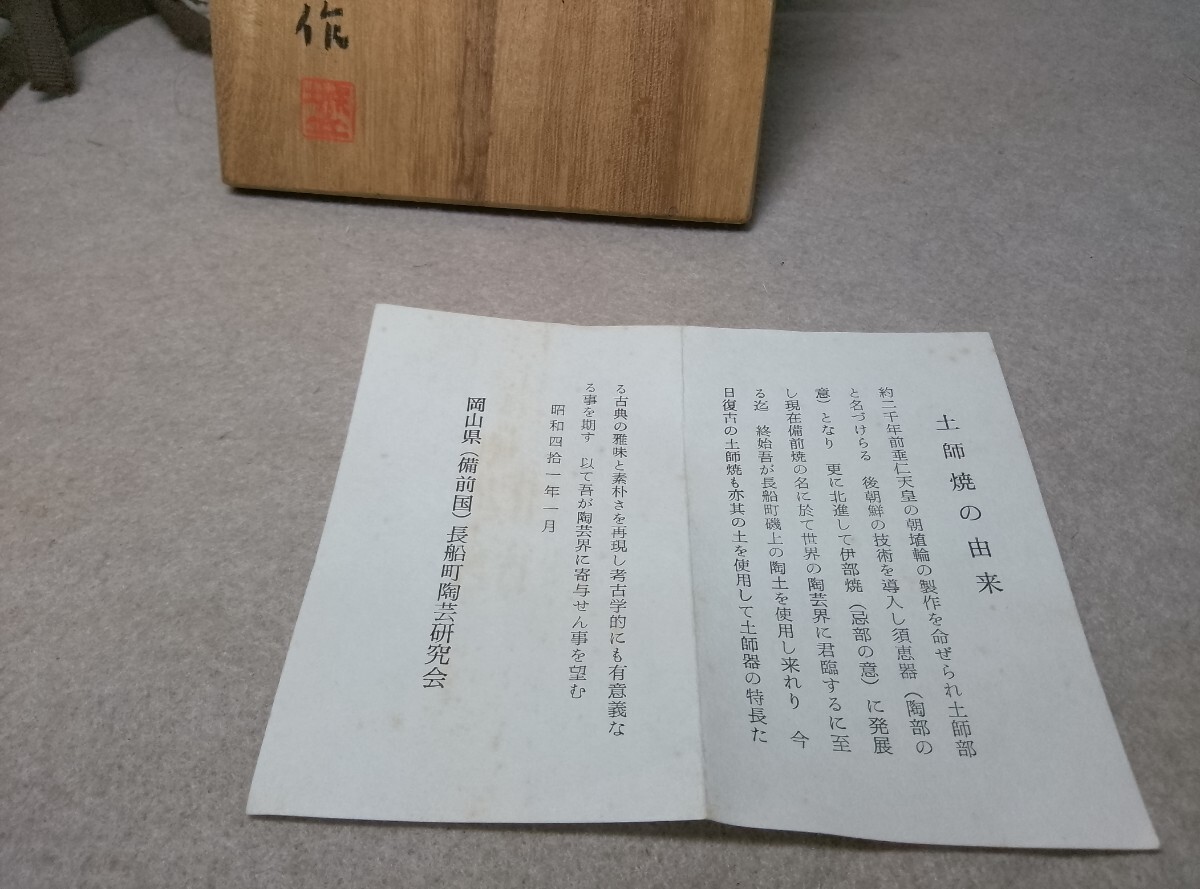 作
土師焼の由来
約二千年前垂仁天皇の朝埴輪の製作を命ぜられ土師部
と名づけらる 後朝鮮の技術を導入し須恵器（陶部の
意）となり 更に北進して伊部焼（忌部の意）に発展
し現在備前焼の名に於て世界の陶芸界に君臨するに至
る迄 終始吾が長船町磯上の陶土を使用し来れり 今
日復古の土師焼も亦其の土を使用して土師器の特長た
る古典の雅味と素朴さを再現し考古学的にも有意義な
る事を期す 以て吾が陶芸界に寄与せん事を望む
昭和四拾一年一月
岡山県（備前国）長船町陶芸研究会